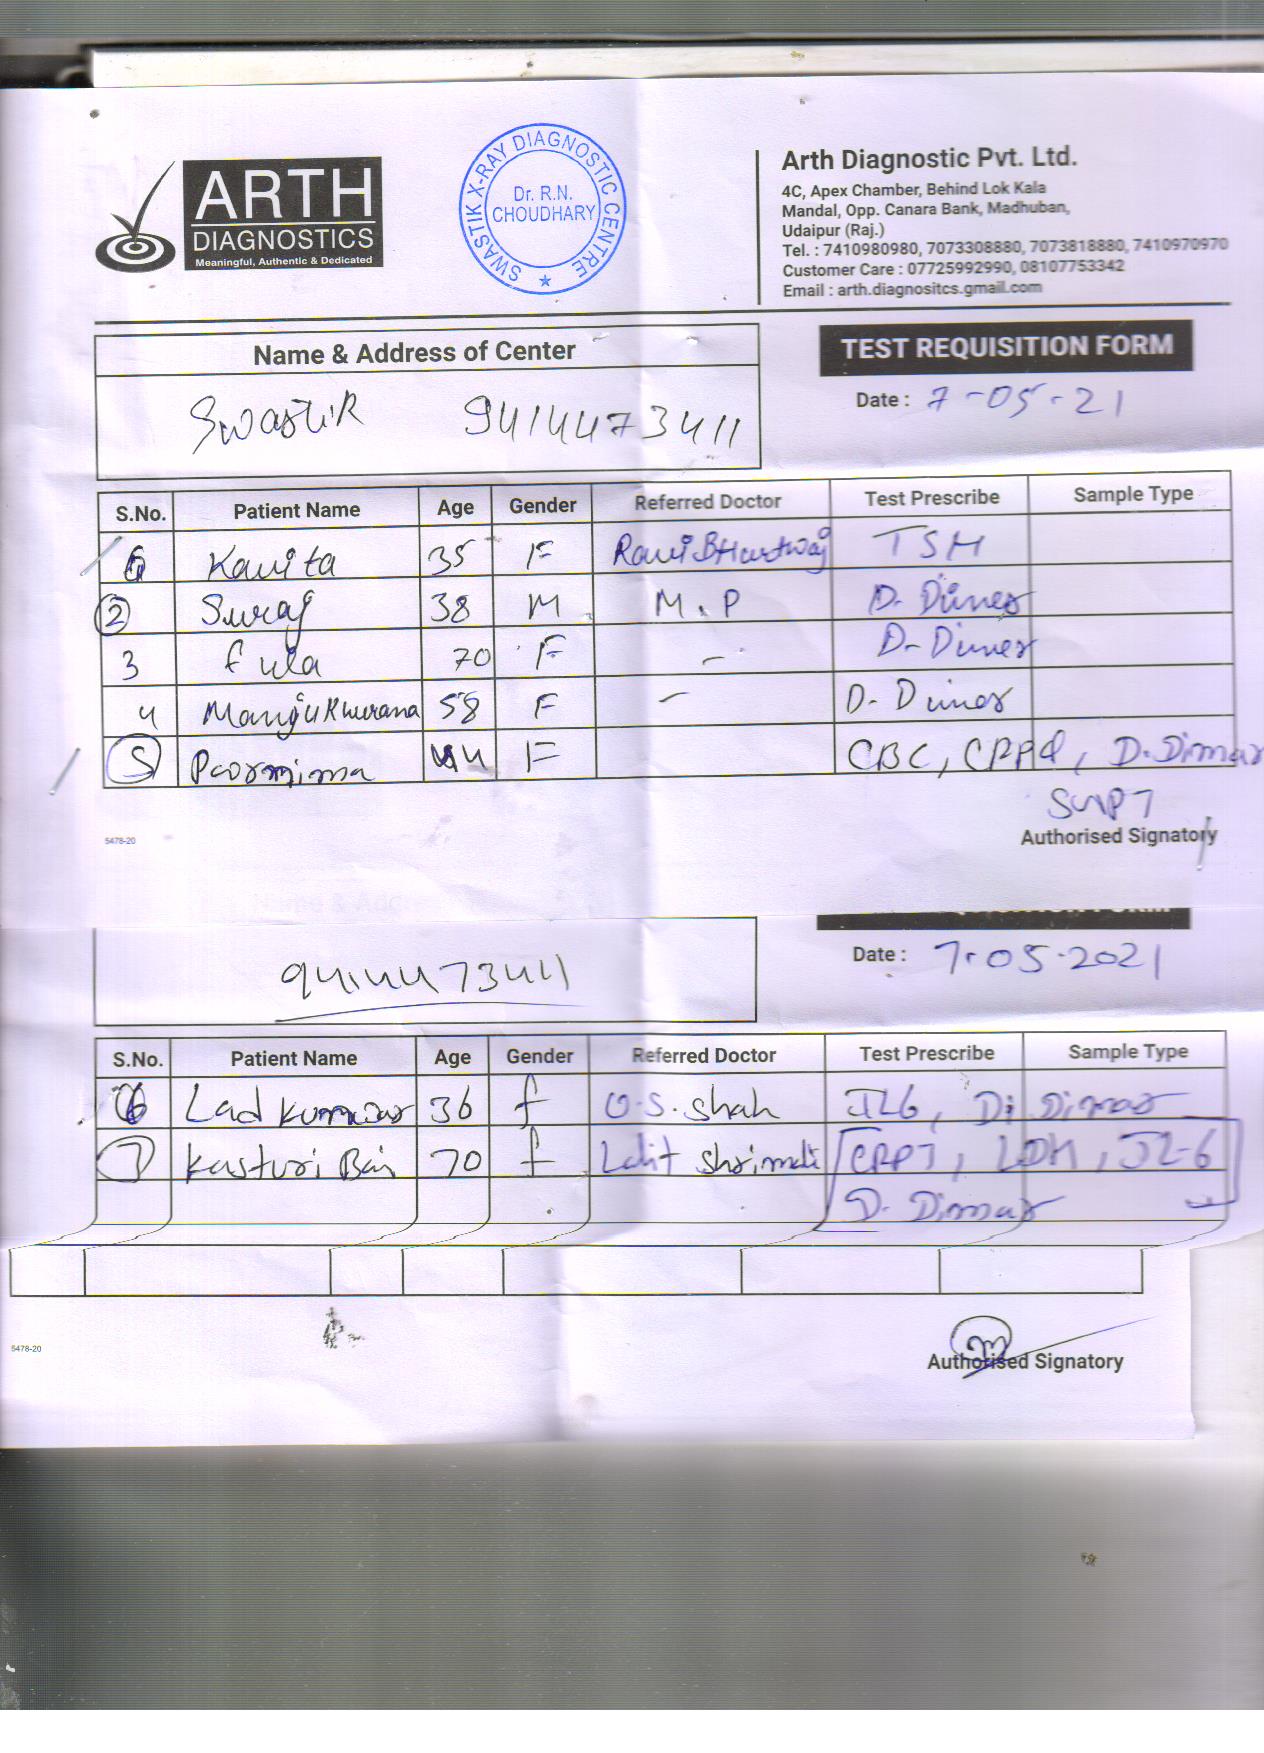 ARTH
DIAGNOSTICS
Meaningful, Authentic & Dedicated
SWASTIK X-RAY DIAGNOSTIC CENTRE
Dr. R.N.
CHOUDHARY
Arth Diagnostic Pvt. Ltd.
4C, Apex Chamber, Behind Lok Kala
Mandal, Opp. Canara Bank, Madhuban,
Udaipur (Raj.)
Tel. : 7410980980, 7073308880, 7073818880, 7410970970
Customer Care : 07725992990, 08107753342
Email : arth.diagnositcs.gmail.com
Name & Address of Center
TEST REQUISITION FORM
Swastik 9414473411
Date : 7-05-21
S.No. Patient Name Age Gender Referred Doctor Test Prescribe Sample Type
Kavita 35 F Ravi TSH
2 Suraj 38 M M.P D. Dimer
3 fula 70 F - D-Dimer
4 Manju Khurana 58 F - D-Dimer
5 Poornima 44 F CBC, D.Dimar
Authorised Signatory
5478-20
Date : 7.05.2021
9414473411
S.No. Patient Name Age Gender Referred Doctor Test Prescribe Sample Type
6 Lad kumwar 36 f O.S. Shah IL6, D. Dimar
7 Kasturi Bai 70 f Lalit Shrimali LDH, IL-6
D. Dimar
5478-20
Authorised Signatory